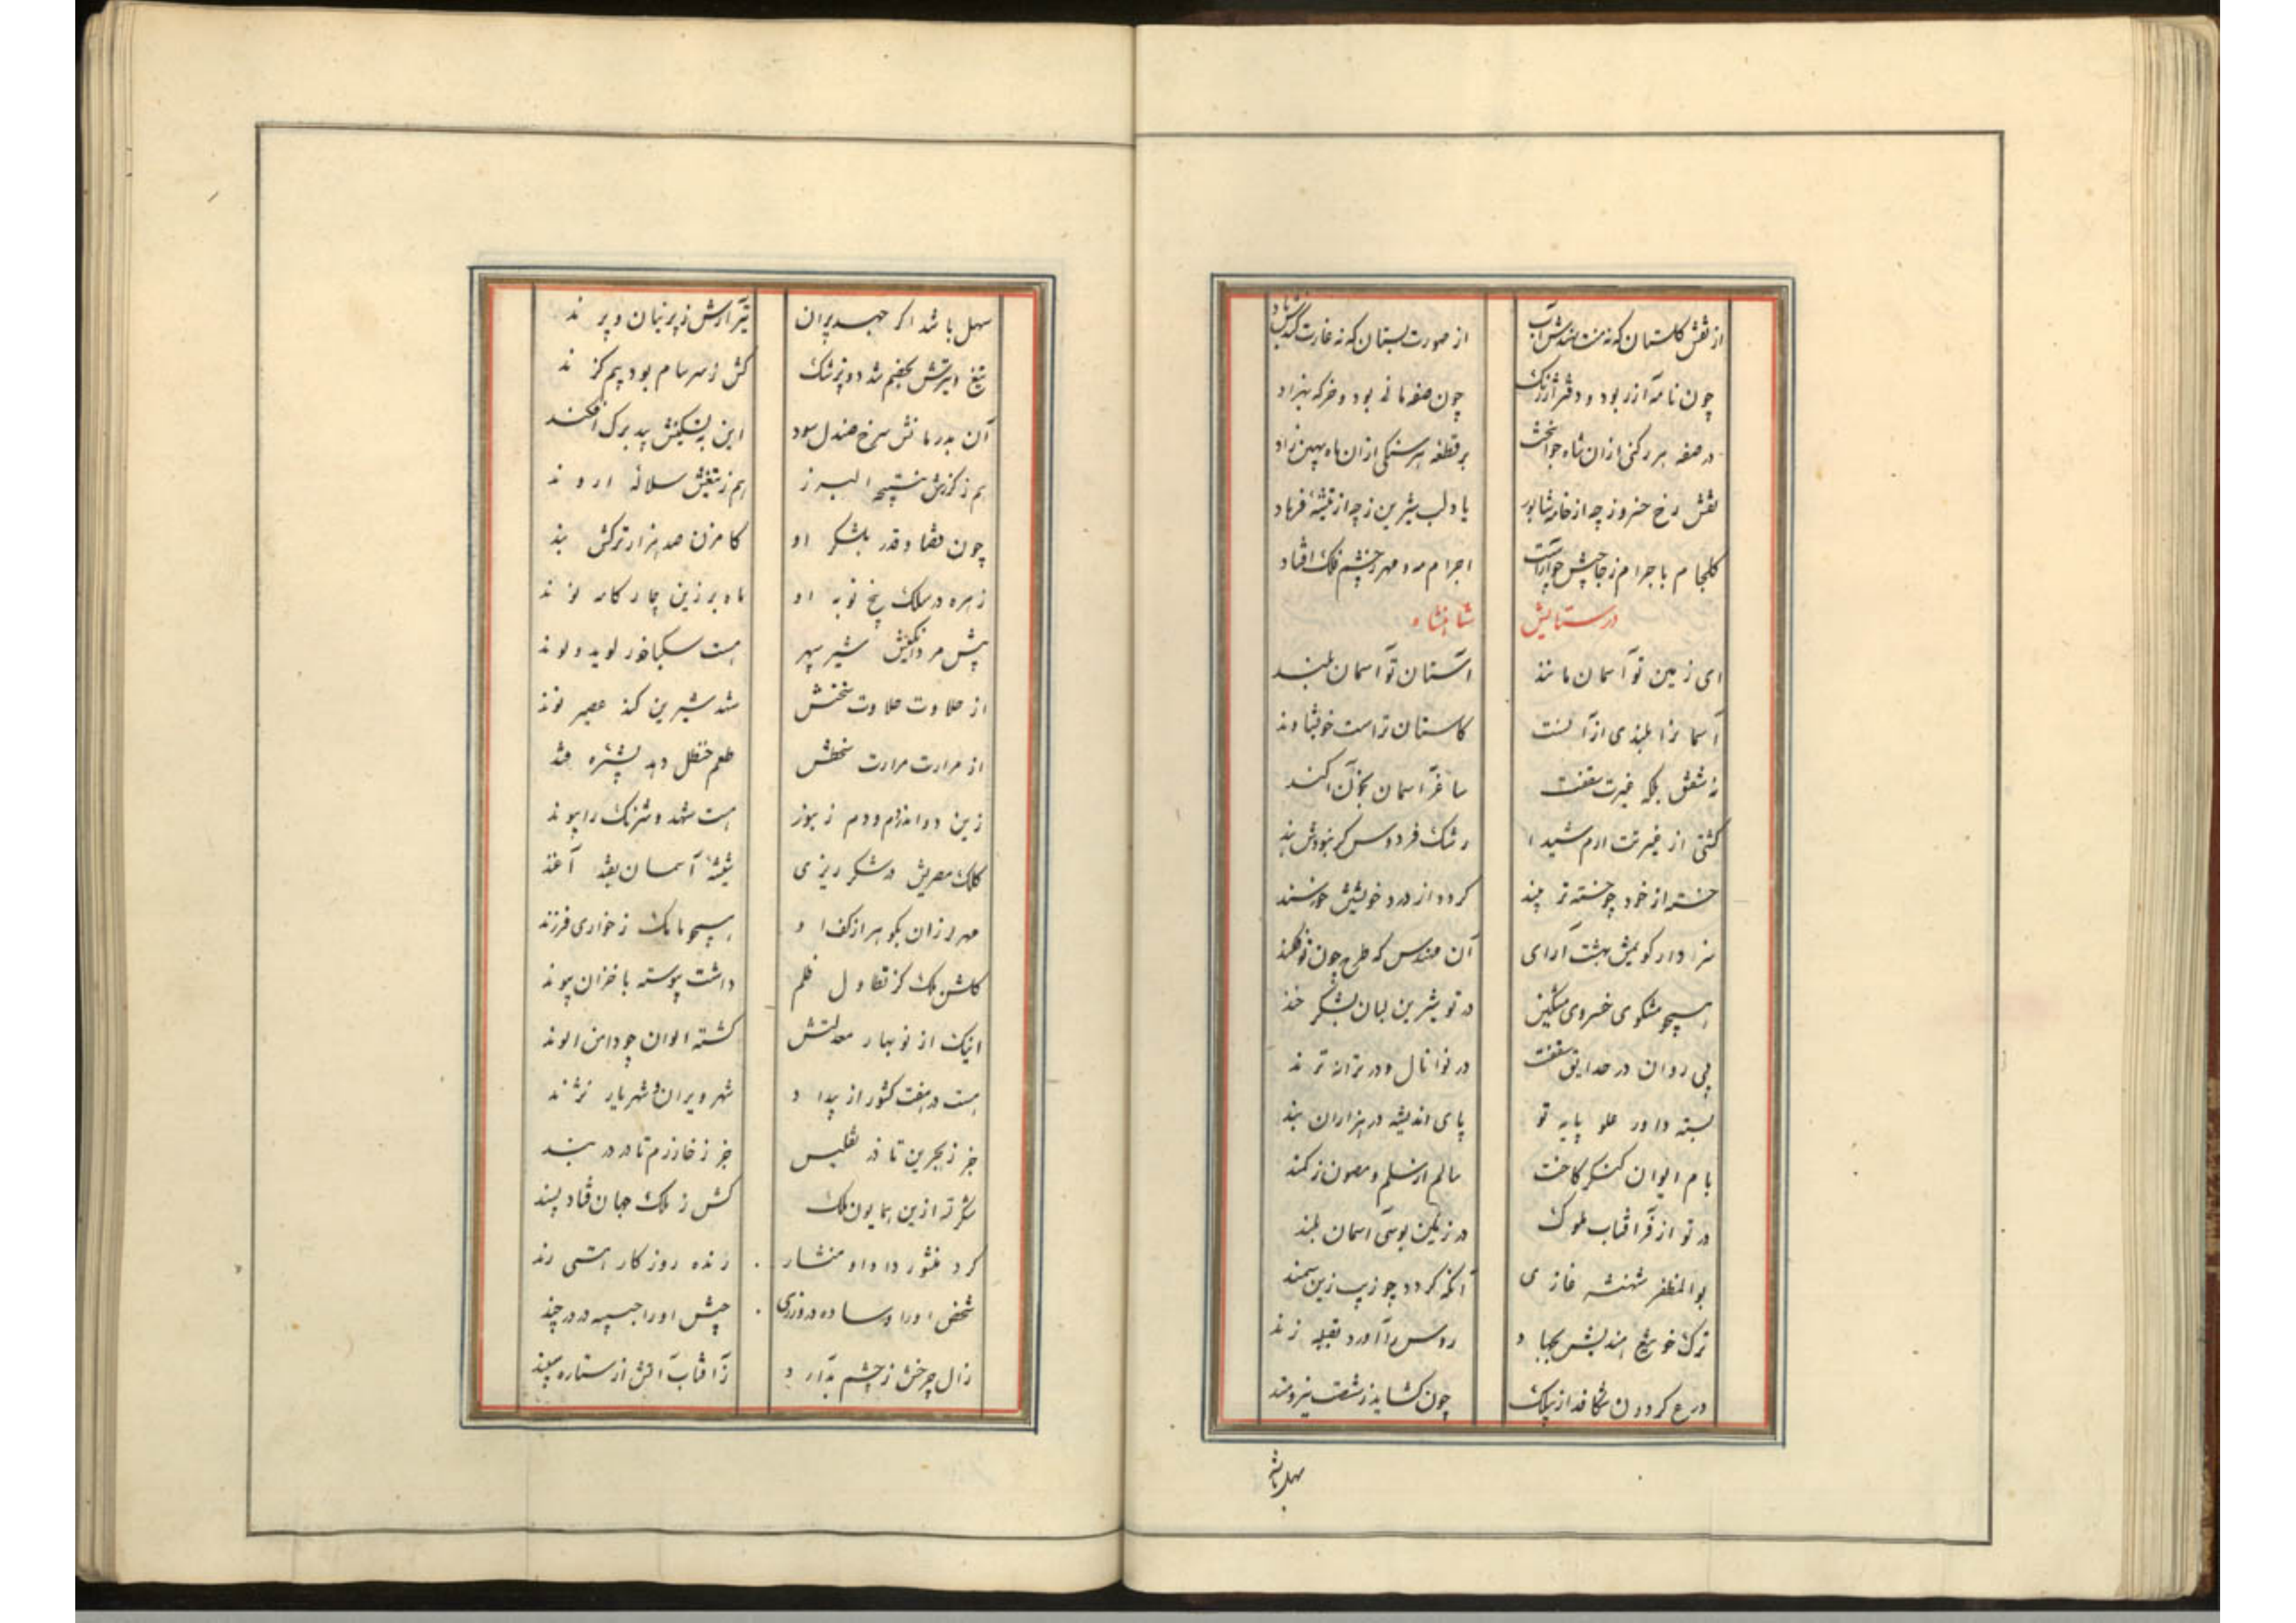 از نقش گلستان که نه منت نهدش آب از صورت بستان که نه غارت کندش باد
چون نامه آزر بود و دفتر ارژنگ چون صفه مانی بود و خرگه بهزاد
در صفه هر رکنی ازان شاه جوانبخت بر قطعه هر سنگی ازان ماه
نقش رخ خسرو ز چه از خامه شاپور یا د لب شیرین ز چه از تیشه فرهاد
گلجام با جرام ز جاجش چو اجرام مه و مهر ز چشم فلک افتاد
در ستایش شاهنشاه
ای زمین تو آسمان مانند استان تو آسمان بلند
آسمانرا بلندی از آنست کاستان تراست خویشاوند
نه شفق بلکه غیرت سقفت ساغر آسمان بخون آکند
گشتی از غیرتت ارم شیدا رشک فردوس گر نبودش بند
خسته از خود چو خسته تر بیند گردد از درد خویشتن خورسند
سزد ار گویمش بهشت آرای آن مهندس که طرح چون تو فکند
همچو مشکوی خسروی مشکین در تو شیرین لبان بشکر خند
پی روان در حدایق سقفت در نوا نال و در ترانه ترند
بسته داور علو پایه تو پای اندیشه در هزاران بند
بام ایوان کنگر کاخت سالم از سلم و مصون ز کمند
در تو از فر آفتاب ملوک در زمین بوسی آسمان بلند
بوالمظفر شهنشه غازی آنکه گردد چو زیب زین سمند
ترک خونریز هندیش بجهاد روس را آورد بقبله زند
درع گردون شکافد از پیلک چون گشاید ز شست نیرومند
سهل باشد
سهل باشد اگر جهد پران تیر آرش ز پرنیان و پرند
تیغ و تیرش بخصم شد دو پزشک کش ز سرسام بود بیم گزند
آن بدرمانش سرخ صندل سود این به تسکینش بید برگ افکند
هم ز گرزش نتیجه البرز هم ز تیغش سلاله اروند
چون قضا و قدر بلشکر او گامزن صد هزار ترکش بند
زهره در سلک پنج نوبه او ماه بر زین چار گامه نوند
پیش مرد افکنش شیر سپهر هست سکباخور لوید و لوند
از حلاوت حلاوت سخنش شهد شیرین کند عصیر نوند
از مرارت مرارت سخطش طعم حنظل دهد بشیره قند
زین دو اندر دم و دم زنبور هست شهد و شرنگ را پیوند
کلک مصریش در شکر ریزی شیشه آسمان بقند آغند
مهر لرزان بگوهر از کف او همچو مامک ز خواری فرزند
گلشن ملک کز تطاول ظلم داشت پیوسته با خزان پیوند
اینک از نوبهار معدلتش گشته الوان چو دامن الوند
هست در هفت کشور از بیداد شهر ویران و شهریار نژند
جز ز بحرین تا در تفلیس جز ز خوارزم تا در دربند
شکر ته ازین همایون ملک کش ز ملک جهان فتاد پسند
کرد منشور داد او منشار رنده روزگار هستی رند
شخص او را وساده در وزری جیش او را جبیه در درچند
زال چرخش ز چشم بد آرد ز آفتاب آتش از ستاره سپند